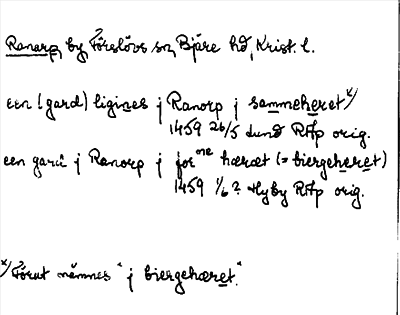 Ranarp, by, Förslövs sn, Bjäre hd, Krist. l.
een (gard) ligines j Ranorp j sammeheret x/
1459 26/5 Lund RAp orig.
een gard j Ranorp j for ne hæræt (= biergeheret)
1459 1/6 ? Hyby RAp orig.
x/ Förut nämnes "j biergehæret."